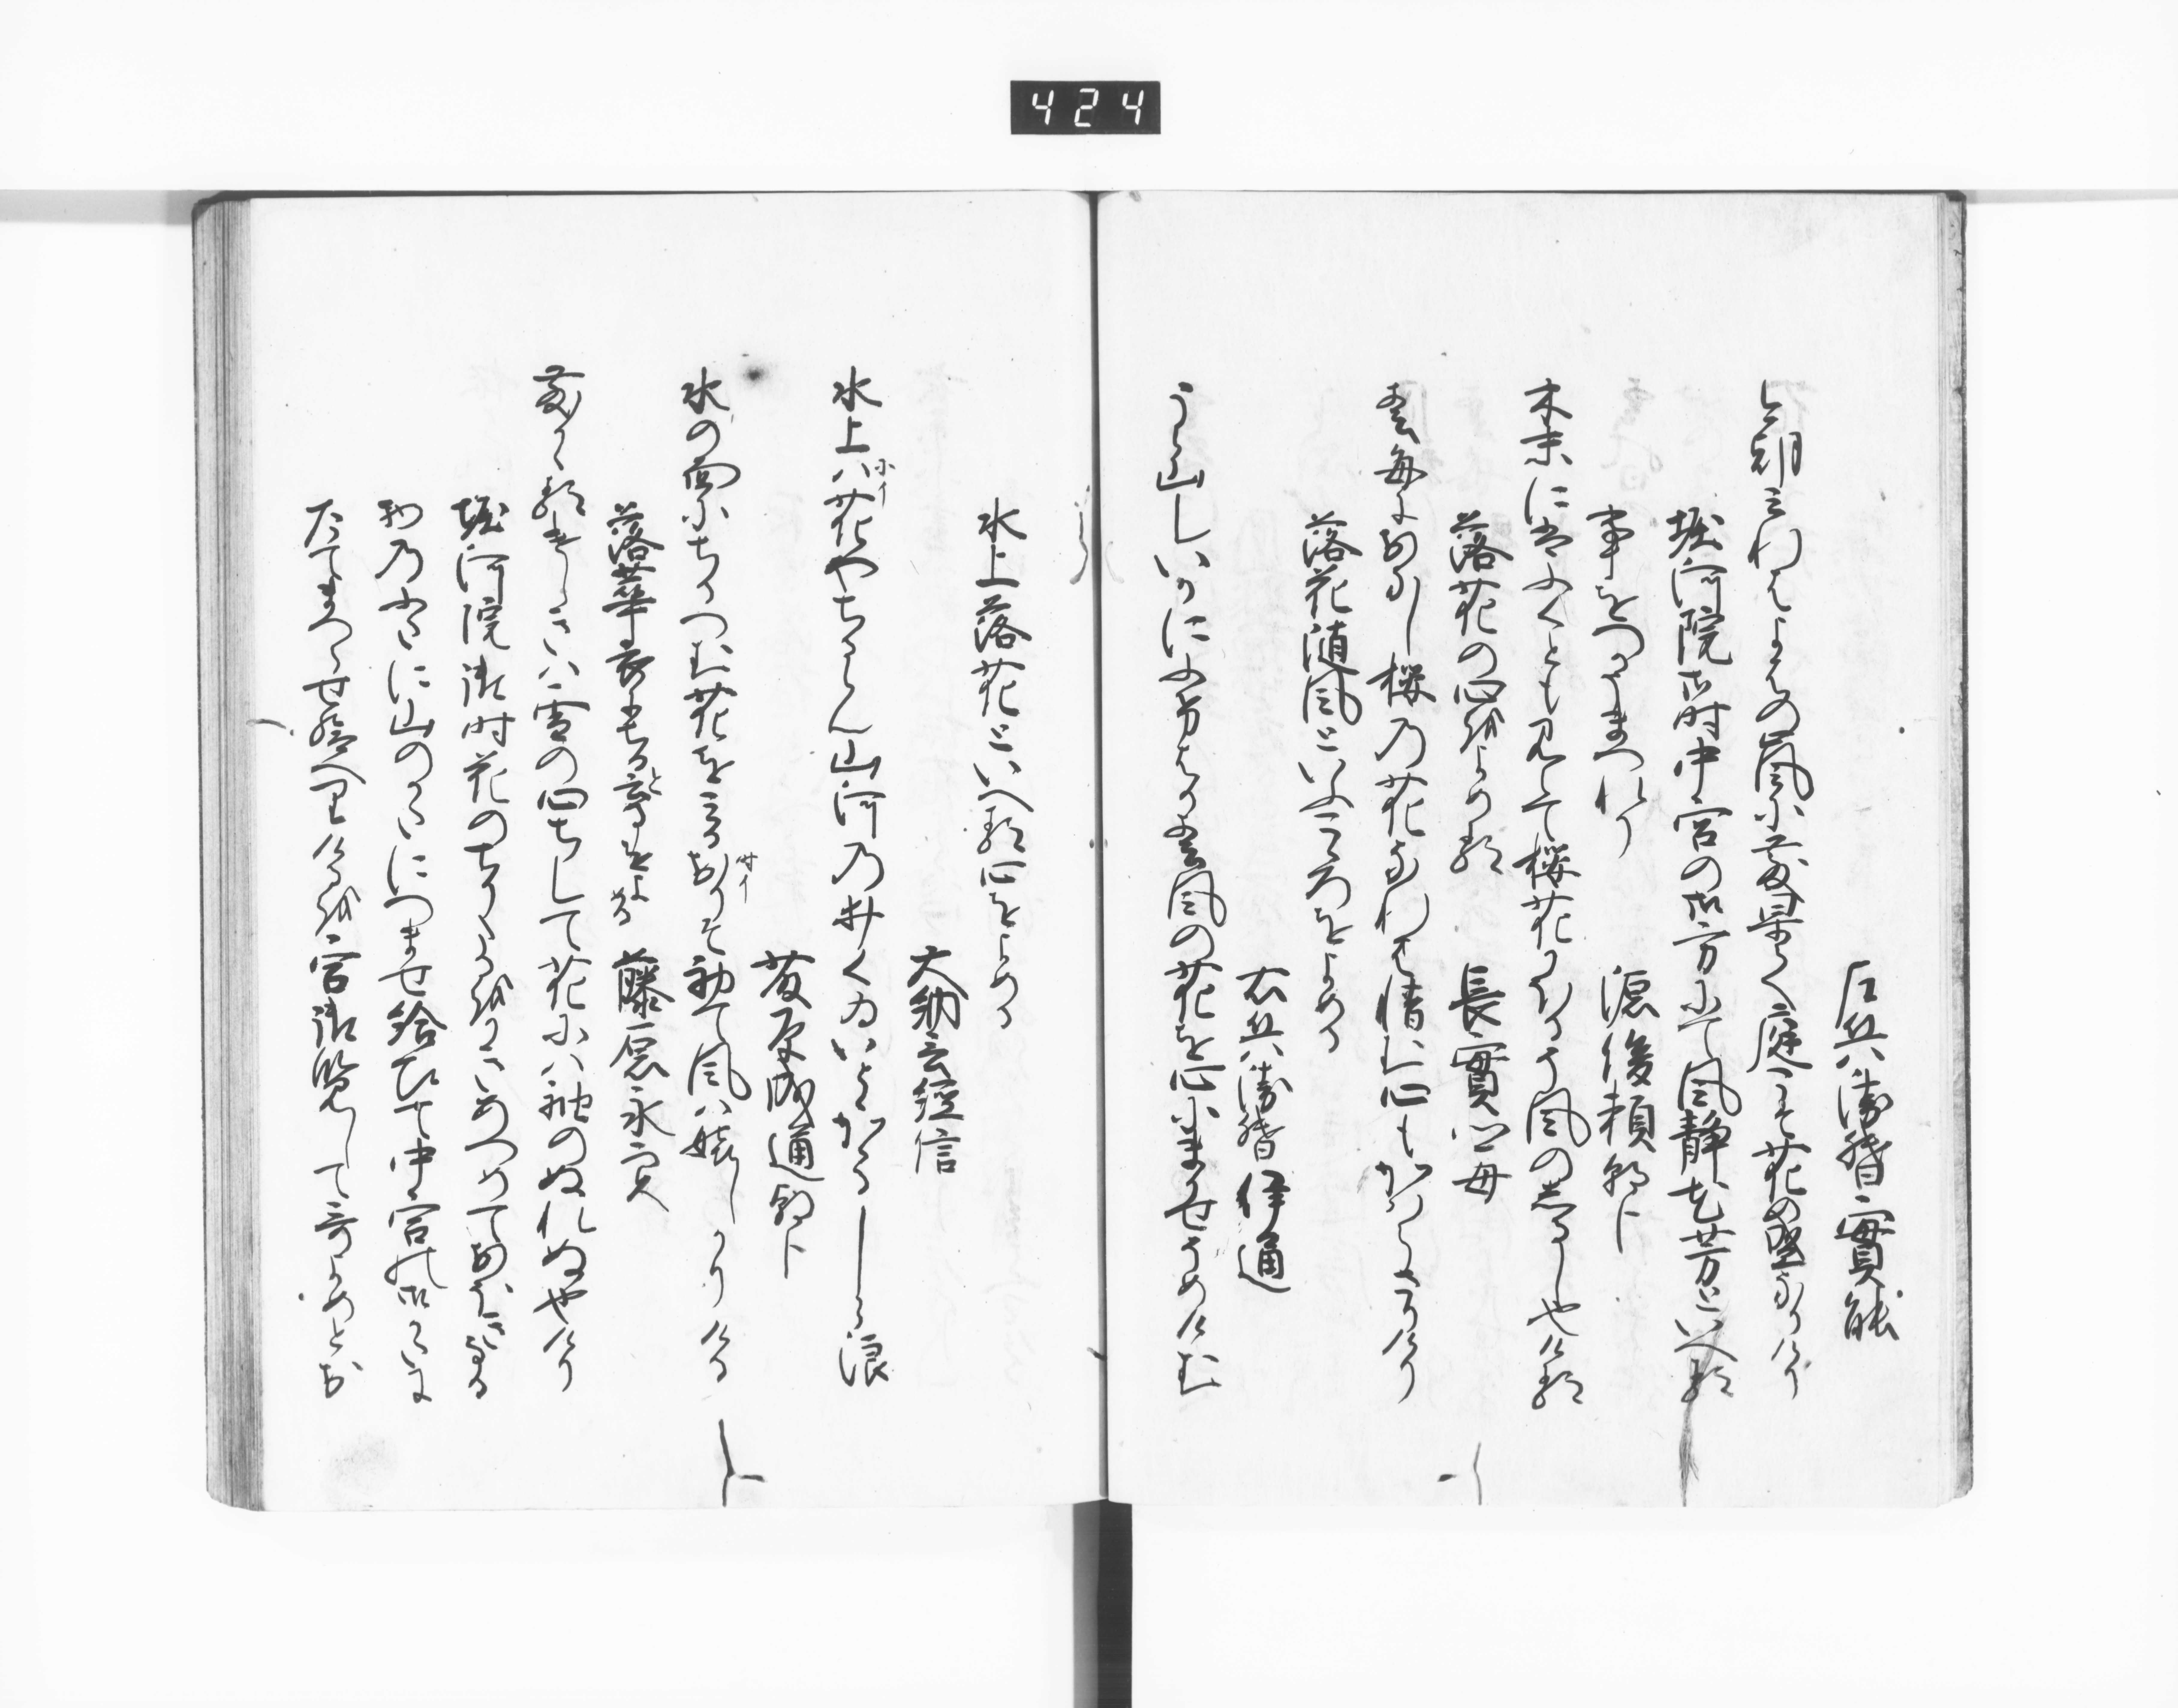 424
左兵衛督實能
今朝みれはよはの嵐に散果て庭こそ花の盛なりけり
堀河院御時中宮の御方にて風静花芳といへる
事をつかうまつれり　源俊頼朝臣
木末にはふくとも見えて桜花かほるそ風のしるしなりける
落花の心をよめる　長實卿母
春毎にあかし桜の花なれは惜む心もかはらさりけり
落花随風といふこころをよめる
右兵衛督伊通
うら山しいかにふけはか春風の花を心にまかせそめけむ
水上落花といへる心をよめる
大納言経信
水上ハ花やちるらん山河の井くゐいとゝかゝるしら浪
にイ
藤原成通朝臣
水の面にちりつむ花をみるおりそ初て風ハ嬉しかりける
サイ
落華衣にちると云事をよめる　藤原永実
散かゝるけしきハ雪の心ちして花にハ袖のぬれぬ也けり
堀河院御時花のちりたるをかきあつめておほきなる
物のふたに山のかたにつませ給ひて中宮の御かたに
たてまつらせ給へりけるを宮御覧して哥よめとお